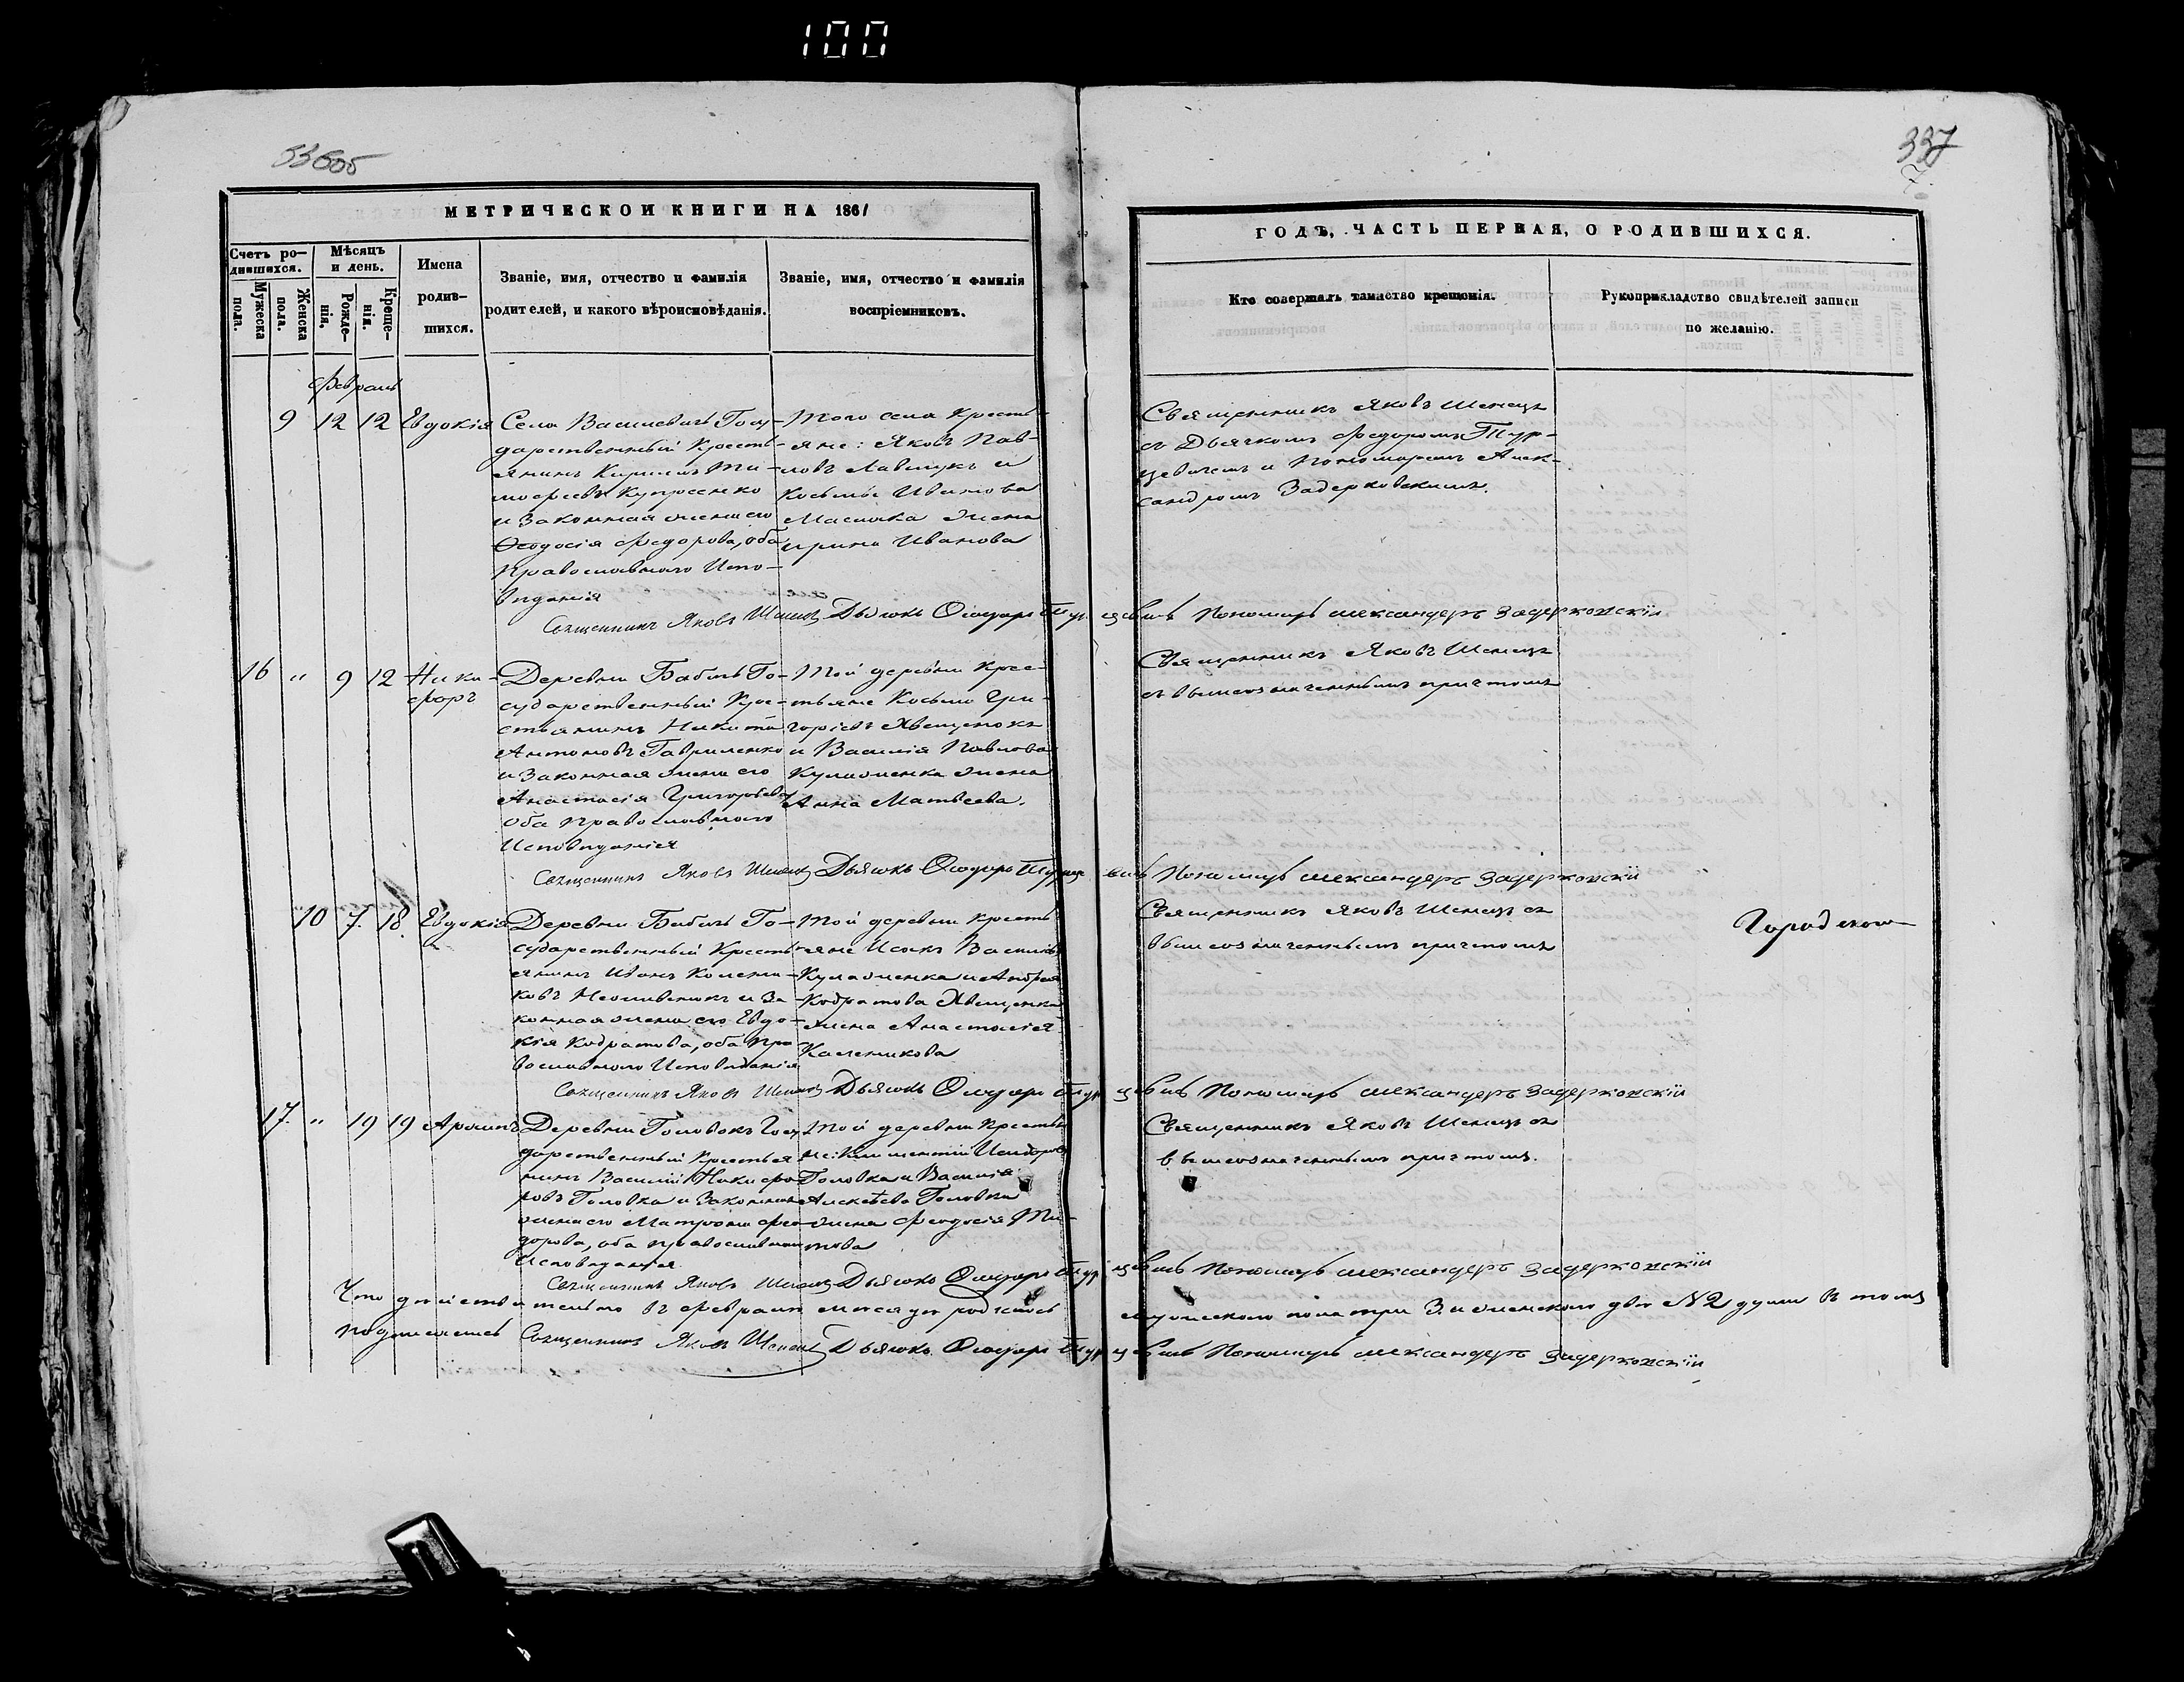 100
53 605
337
7
МЕТРИЧЕСКОЙ КНИГИ НА 1861
ГОДЪ, ЧАСТЬ ПЕРВАЯ, О РОДИВШИХСЯ.
Счетъ ро-
дившихся.
Мужеска
пола.
Женска
пола.
Мѣсяцъ
и день.
Рожде-
нія.
Креще-
нія.
Имена
родив-
шихся.
Званіе, имя, отчество и фамилія
родителей, и какого вѣроисповѣданія.
Званіе, имя, отчество и фамилія
воспріемниковъ.
Кто совершалъ таинство крещенія.
Рукоприкладство свидѣтелей записи
по желанію.
Февраль
9 12 12 Евдокія
Села Василевичъ Госу-
дарственный Кресть-
янинъ Кириллъ Ти-
моѳеевъ Купреенко
и Законная жена его
Ѳеодосія Федорова, оба
Православнаго Испо-
вѣданія
Того села Кресть-
яне: Яковъ Пав-
ловъ и
Косьмы Иванова
Маслюка жена
Ирина Иванова
Священникъ Яковъ Шенецъ
съ Дьячкомъ Федоромъ Тур-
цевичемъ и Пономаремъ Алек-
сандромъ Задерковскимъ.
Священникъ Яковъ Шенецъ Дьячокъ Ѳеодоръ Турцевичъ Пономарь Александеръ Задерковскій
16 " 9 12 Ники-
форъ
Деревни Бабичъ Го-
сударственный Кре-
стьянинъ Никита
Антоновъ Гавриленко
и Законная жена его
Анастасія Григорьева
оба Православнаго
Исповѣданія
Той деревни Крес-
тьяне Косьма Гри-
горіевъ Явещенокъ
и Василія Павлова
жена
Анна Матвѣева.
Священникъ Яковъ Шенецъ
съ вышеозначеннымъ причтомъ
Священникъ Яковъ Шенецъ Дьячокъ Ѳеодоръ Турцевичъ Пономарь Александеръ Задерковскій
10 7. 18. Евдокія
Деревни Бабичъ Го-
сударственный Кресть-
янинъ Иванъ Калени-
ковъ и За-
конная жена его Евдо-
кія Кодратова, оба Пра-
вославнаго Исповѣданія
Той деревни Кресть-
яне Исакъ Васильевъ
и Андрея
Кодратова Явещенка
жена Анастасія
Каленикова
Священникъ Яковъ Шенецъ съ
вышеозначеннымъ причтомъ
Священникъ Яковъ Шенецъ Дьячокъ Ѳеодоръ Турцевичъ Пономарь Александеръ Задерковскій
17. " 19 19
Деревни Головокъ Госу-
дарственный Крестья-
нинъ Василій Никифо-
ровъ Головка и Законная
жена его Матрона Фео-
дорова, оба православнаго
Исповѣданія.
Той деревни Крестья-
не: Климентій Исидоровъ
Головка и Василія
Алексѣева Головки
жена Феодосія Ти-
това
Священникъ Яковъ Шенецъ съ
вышеозначеннымъ причтомъ.
Священникъ Яковъ Шенецъ Дьячокъ Ѳеодоръ Турцевичъ Пономарь Александеръ Задерковскій
Что дѣйствительно въ Февралѣ мѣсяцѣ родилось мужескаго пола три 3. и женскаго двѣ № 2 души въ томъ
подписались Священникъ Яковъ Шенецъ Дьячокъ Ѳеодоръ Турцевичъ Пономарь Александеръ Задерковскій